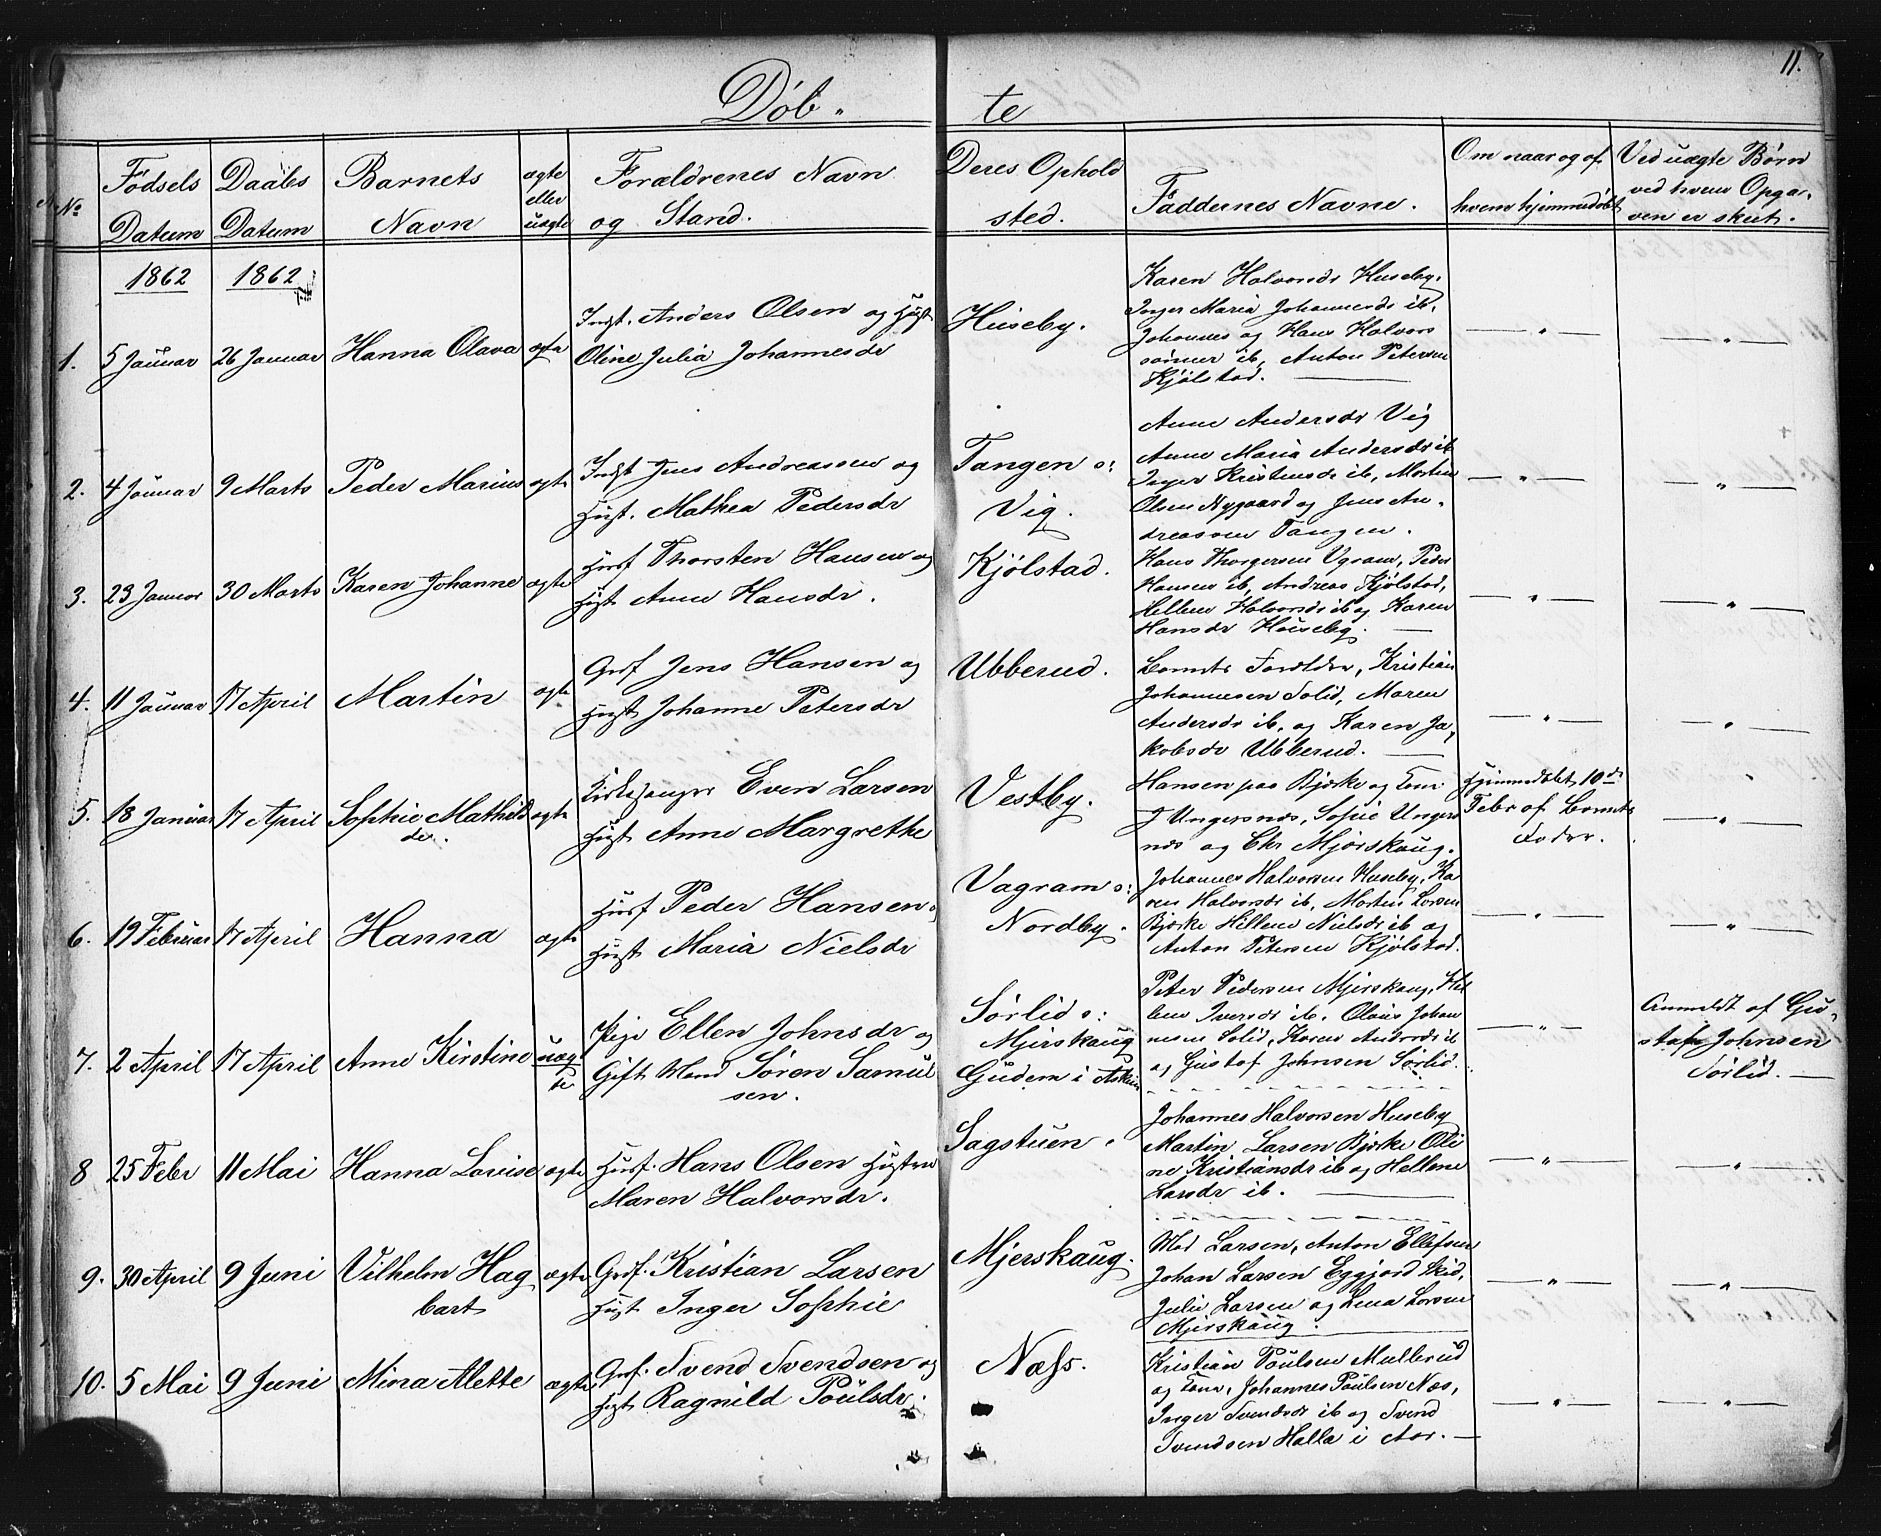 11.
Döb. te
No
Födsels Datum
Daabs Datum
Barnets Navn
ægte eller uægte
Forældrenes Navn og Stand.
Deres Ophold sted.
Faddernes Navne.
Om naar og af hvem hjemmedöbt
Ved uægte Börn ved hvem Opga, ven er skeet.
1862 1862
1. 5 Januar 26 Januar Hanna Olava ægte
Indst. Anders Olsen og Hust
Oline Julia Johannesdr
Huseby.
Karen Halvorsdr Huseby.
Inger Maria Johannesdr ib.
Johannes og Hans Halvors
sönner ib, Anton Petersen
Kjölstad.
— " — — " —
2. 4 Januar 9 Marts Peder Marius ægte
Indst Jens Andreassen og
Hust. Mathea Pedersdr
Tangen o:
Vig.
Anne Andersdr Vig
Anne Maria Andersdr ib
Inger Kristensdr ib, Morten
Olsen Nygaard og Jens An-
dreassen Tangen.
— " — — " —
3. 23 Januar 30 Marts Karen Johanne ægte
Husf Thorsten Hansen og
Hust Anne Hansdr.
Kjölstad.
Hans Thorgersen Vgram, Peder
Hansen ib, Andreas Kjölstad,
Hellene Halvorsdr ib og Karen
Hansdr Huseby.
— " — — " —
4. 11 Januar 17 April Martin ægte
Grdf Jens Hansen og
Hust Johanne Petersdr
Ubberud.
Barnets Forældre, Kristian
Johannesen Solid, Maren
Andersdr ib, og Karen Ja,
kobsdr Ubberud.
— " — — " —
5. 18 Januar 17 April Sophie Mathild
de. ægte
Kirkesanger Even Larsen
Hust Anne Margrethe
Vestby.
Hansen paa Bjørke og Kone
J Ungersnæs, Sofie Ungers
næs og Chr Mjørskaug.
Hjemmedöbt 10de
Febr af Barnets
Fader.
— " —
6. 19 Februar 17 April Hanna ægte
Husf Peder Hansen og
Hust Maria Nielsdr
Vagram o:
Nordby.
Johannes Halvorsen Huseby, Ka
ren Halvorsdr ib, Martin Larsen
Bjørke Hellene Nielsdr ib og
Anton Petersen Kjölstad.
— " — — " —
7. 2 April 17 April Anne Kirstine uæg
te
Pige Ellen Johnsdr og
Gift Mand Sören Samuel
sen.
Sörlid o:
Mjerskaug
Gudem i Askim
Peter Pedersen Mjerskaug, Hel
lene Iversdr ib. Olaus Johan
nesen Solid, Karen Andersdr ib
og Gustaf Johnsen Sörlid.
— " —
Anmeldt af Gu,
staf Johnsen
Sörlid.
8 25 Febr 11 Mai Hanna Lovise ægte
Husf. Hans Olsen Hustru
Maren Halvorsdr.
Sagstuen.
Johannes Halvorsen Huseby
Martin Larsen Bjørke Oli
ne Kristiansdr ib og Hellene
Larsdr ib.
— " — — " —
9. 30 April 9 Juni Vilhelm Hag
bart ægte
Grdf. Kristian Larsen
Hust Inger Sophie
Mjerskaug.
Mad Larsen, Anton Ellefsen
Johan Larsen Eggjord Skid,
Julie Larsen og Lena Larsen
Mjerskaug.
— " — — " —
10. 5 Mai 9 Juni Mina Alette ægte
Grdf. Svend Svendsen og
Hust Ragnild Poulsdr.
Næss.
Kristian Poulsen Mullerud
og Kone, Johannes Poulsen Næs,
Inger Svendsdr ib og Svend
Svendsen Halla i Aas.
— " — — " —